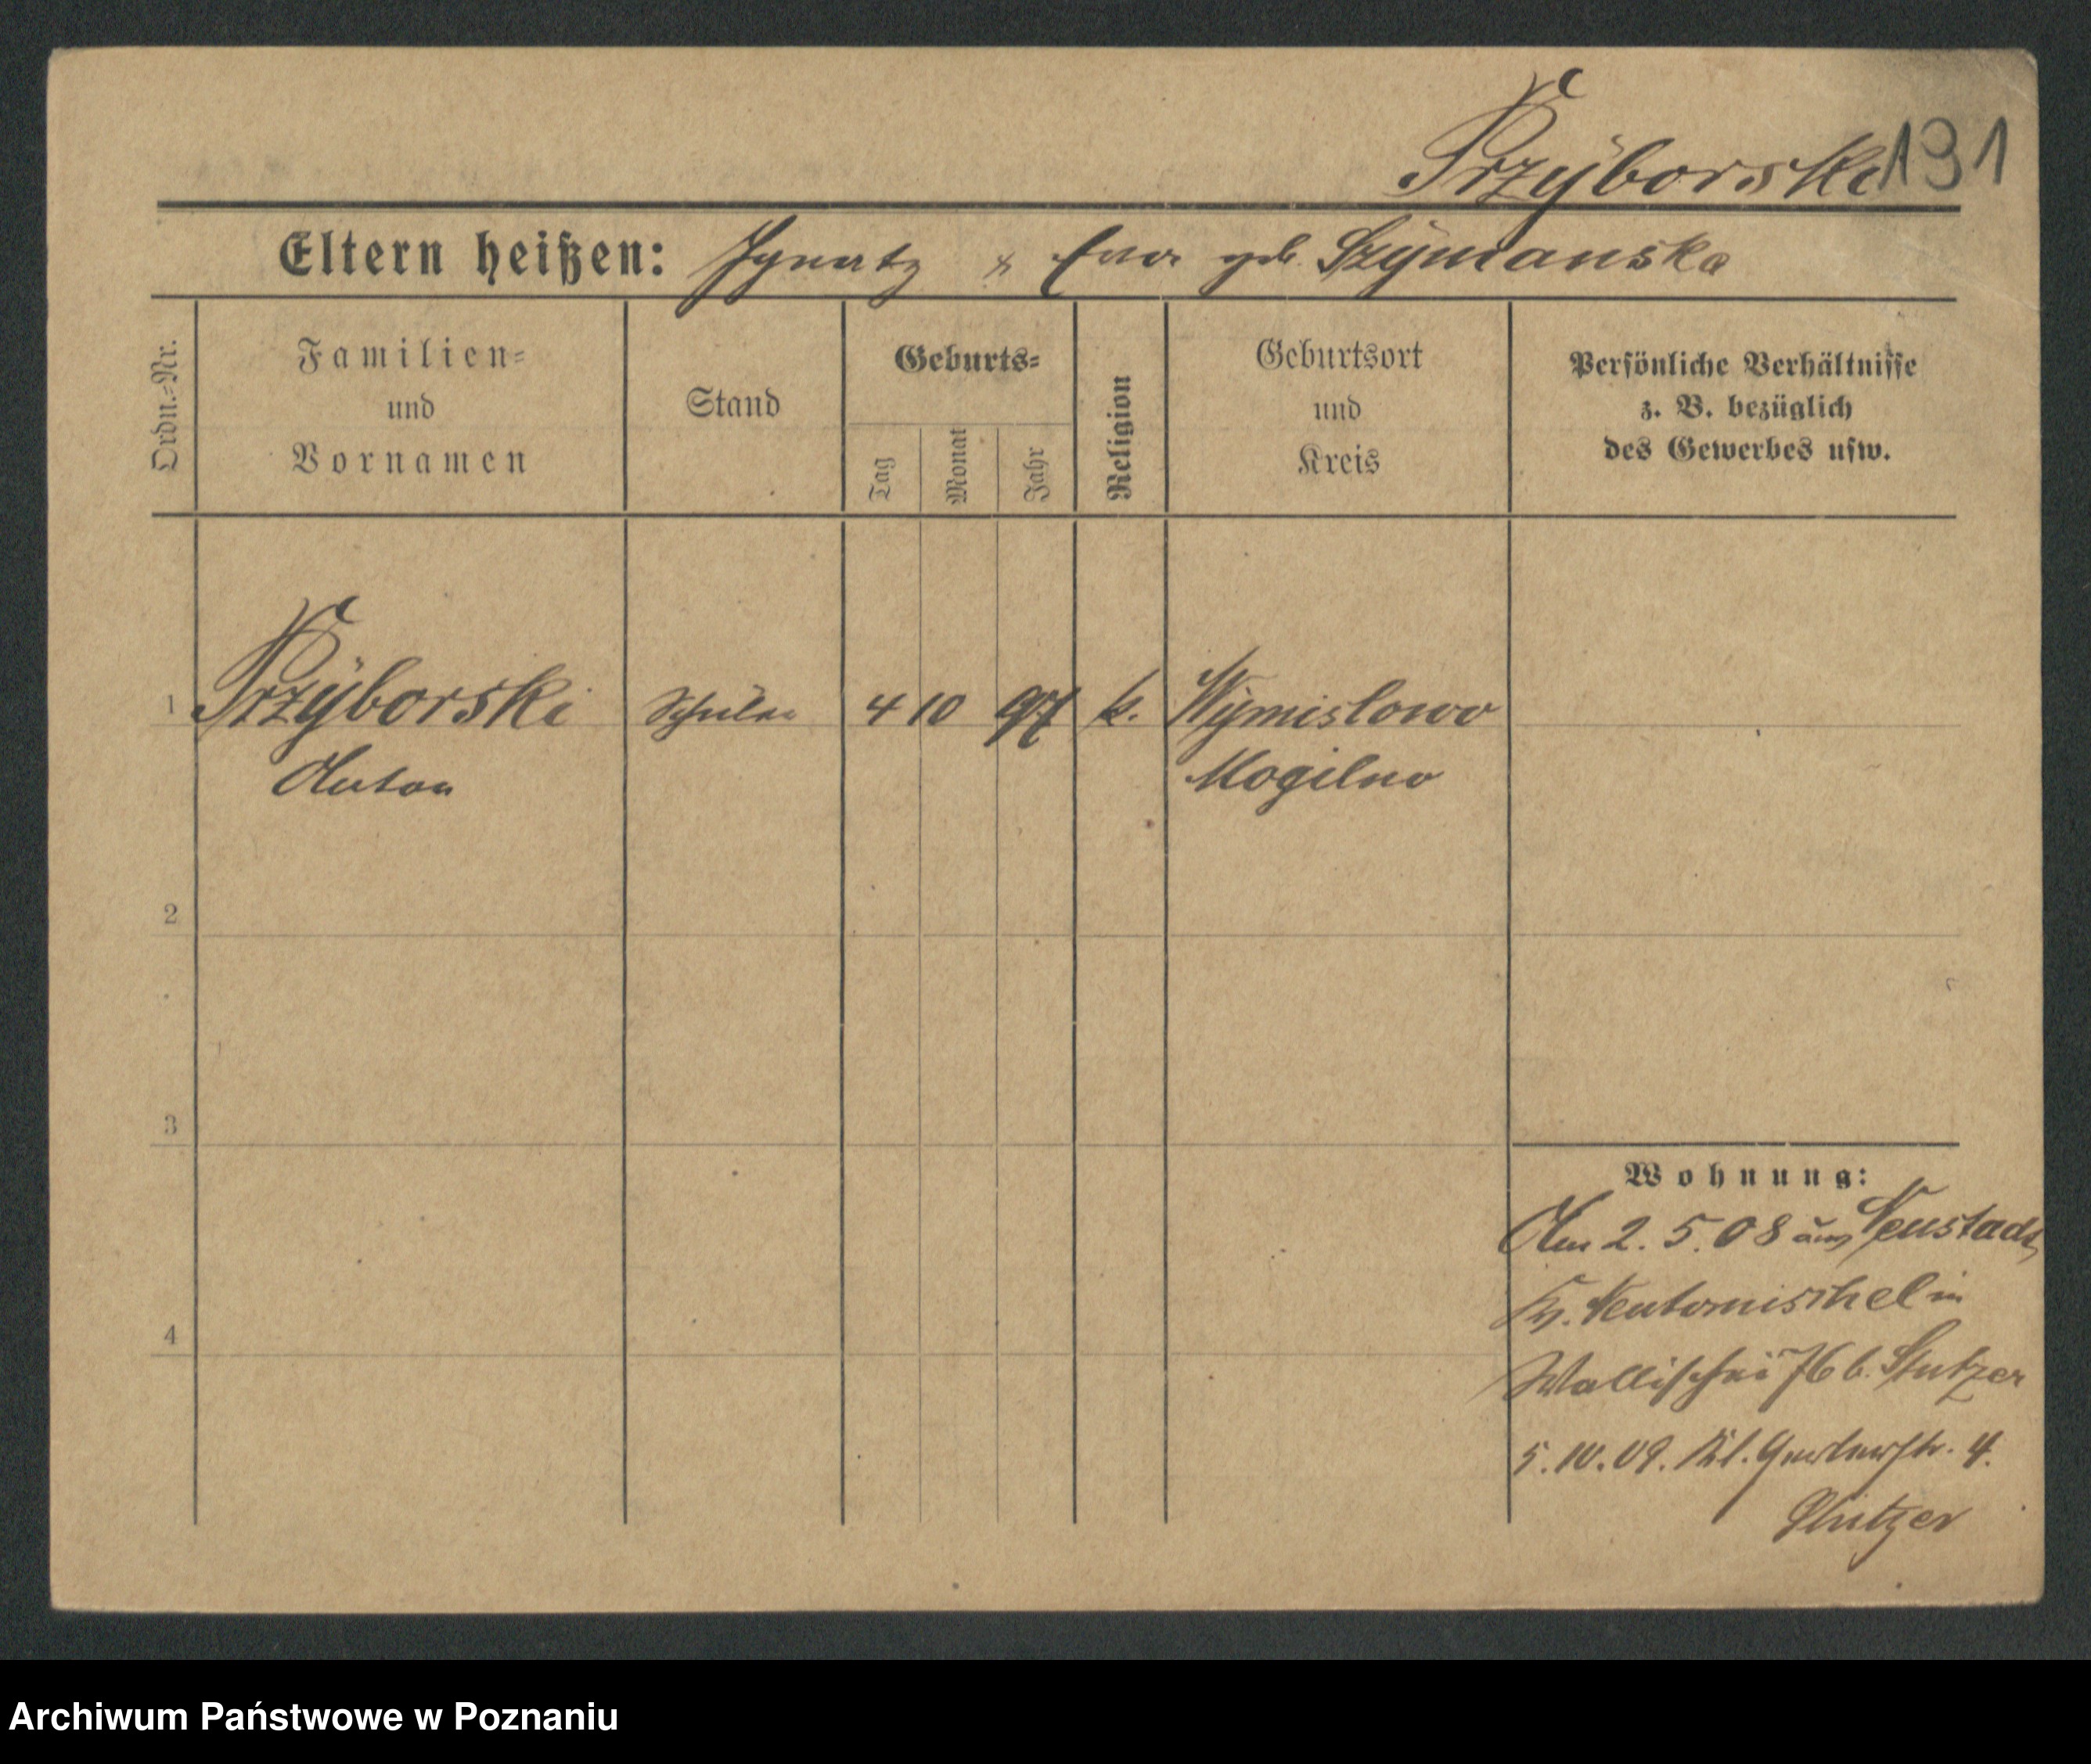 Przÿborski 191
Eltern heißen: Ignatz & Eva geb. Szÿmanska
Ordn.=Nr.
Familien=
und
Vornamen
Stand
Geburts=
Tag
Monat
Jahr
Religion
Geburtsort
und
Kreis
Persönliche Verhältnisse
z. B. bezüglich
des Gewerbes usw.
1 Przÿborski Schüler 4 10 97 k. Wÿmislowo
Anton Mogilno
2
3
4
Wohnung:
Am 2. 5. 08 aus Neustadt,
Kr. Neutomischel in
Wallischei 76 b. Stutzer
5.10.09. Kl. Gerberstr. 4.
Stutzer
Archiwum Państwowe w Poznaniu